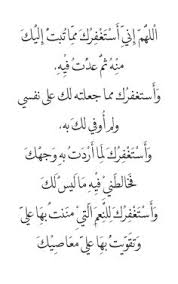 اللهُمَّ إِنِّي أَسْتَغْفِرُكَ مِمَّا تُبْتُ إِلَيْكَ
مِنْهُ ثُمَّ عُدْتُ فِيْهِ.
وَأَسْتَغْفِرُكَ مِمَّا جَعَلْتُه لك عَلَى نَفْسِي
ولم أُوَفي لك بِه.
وَأَسْتَغْفِرُكَ لِمَا أَرَدْتُ بِهِ وَجْهَكَ
فَخَالَطَنِي فِيْهِ مَا لَيْسَ لَكَ
وَأَسْتَغْفِرُكَ لِلنِّعَمِ الَّتِيْ مَنَنْتَ بِهَا عَلَيَّ
وَتَقَوَّيْتُ بِهَا عَلَى مَعَاصِيْكَ